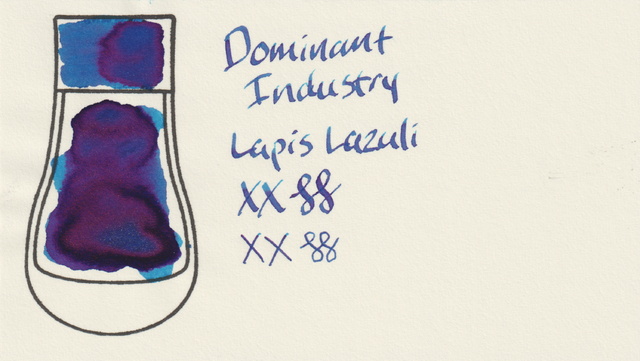 Dominant
Industry
Lapis Lazuli
XX 88
XX 88